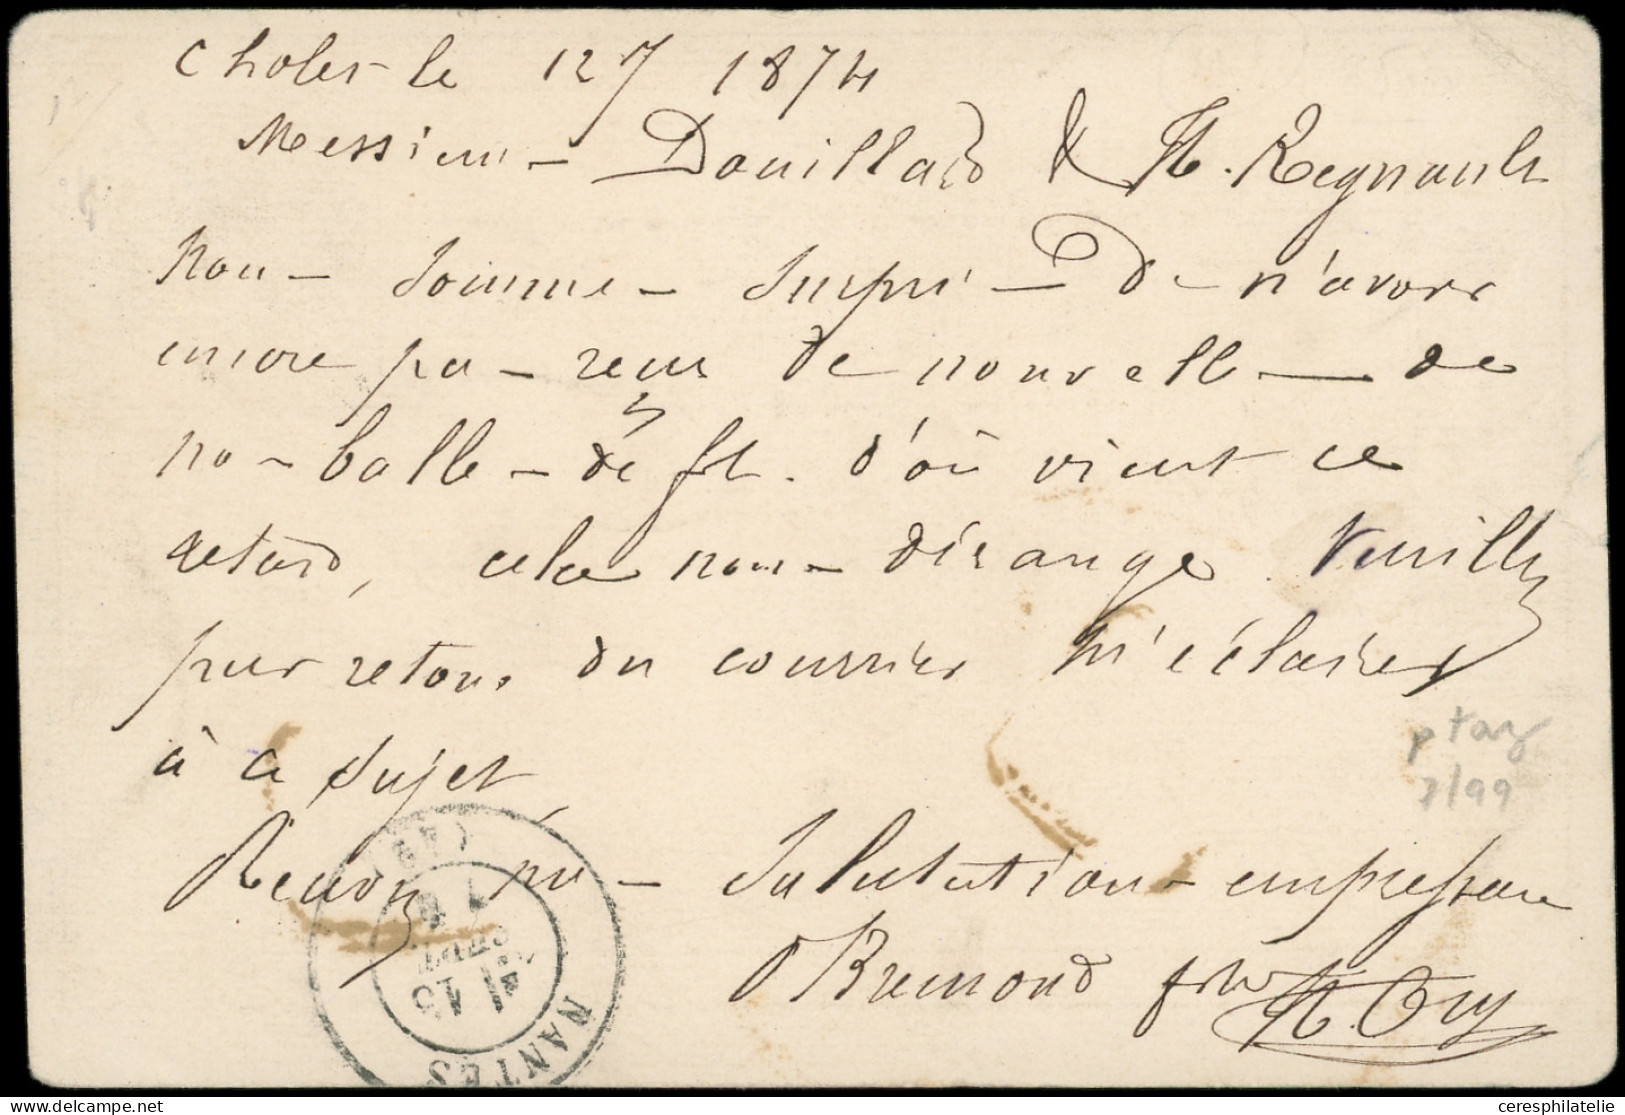 Cholet le 12 7 1874
Messieurs Douillard & H. Regnault
Nous sommes surpris de n'avoir
encore pas reçus de nouvelles de
nos balles de fl. d'où vient ce
retard, cela nous dérange. Veuillez
par retour du courrier m'éclairer
à ce sujet,
ptaz
7/99
Recevez nos Salutations empressées
Bremond H. Ory
NANTES